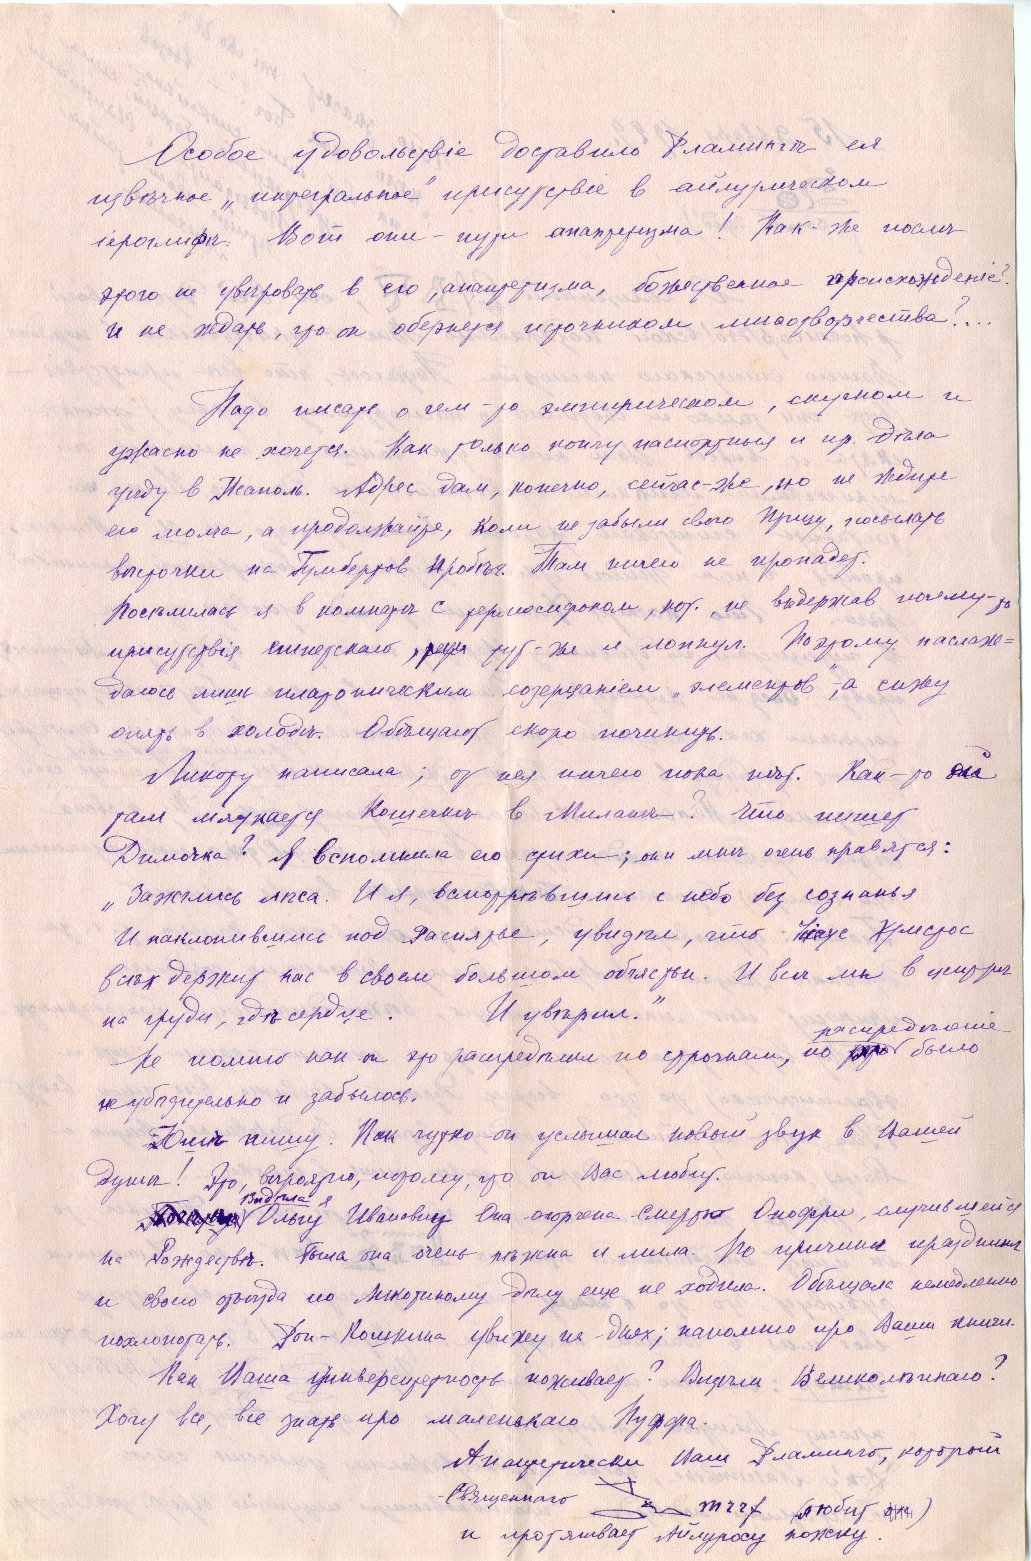 Особое удовольствіе доставило Фламингъ ея
извѣчное „интегральное" присутствіе в айлурическом
іероглифѣ. Вот они – пути анаптетизма! Как-же послѣ
этого не увѣровать в его, анаптетизма, божественное происхожденіе?
И не ждать, что он обернется источником миѳотворчества?...
Надо писать о чем-то эмпирическом, скучном и
ужасно не хочется. Как только кончу паспортныя и пр. дѣла
уѣду в Неаполь. Адрес дам, конечно, сейчас-же, но не ждите
его молча, а продолжайте, коли не забыли свою Птицу, посылать
вѣсточки на Гумбертов пробѣг. Там ничего не пропадет.
Поселилась я в комнатѣ с термосифоном, кот., не выдержав почему-то
присутствія египетскаго, тут-же и лопнул. Поэтому наслаж-
даюсь лишь платоническим созерцаніем „элементов", а сижу
опять в холодѣ. Обѣщают скоро починить.
Ликоту написала; от нея ничего пока нѣт. Как-то
там мяукается Кошечкѣ в Миланѣ? Что пишет
Димочка? Я вспомнила его стихи; они мнѣ очень нравятся:
„Зажглись лѣса. И я, всмотрѣвшись с небо без сознанья
И наклонившись под Распятье, увидѣл, что Іисус Христос
всѣх держит нас в своем большом объятьи. И всѣ мы в центрѣ
на груди, гдѣ сердце. И увѣрил."
Не помню как он это распредѣлил по строчкам, но распредѣленіе было
неубѣдительно и забылось.
Юлѣ пишу. Как чутко он услышал новый звук в Вашей
душѣ! Это, вѣроятно, потому, что он Вас любит.
Видѣла я Ольгу Ивановну. Она огорчена смертью Онофри, случившейся
на Рождествѣ. Была она очень нѣжна и мила. По причинѣ праздников
и своего отъѣзда по Ликотиному дѣлу еще не ходила. Обѣщала немедленно
похлопотать. Дон-Кошкина увижу на-днях; напомню про Ваши книги.
Как Ваша университетность поживает? Видѣли Великолѣпнаго?
Хочу все, все знать про маленькаго Пуффа.
Анаптетически Ваш Фламинго, который
Священнаго (любит)
и протягивает Айлуросу ножку.